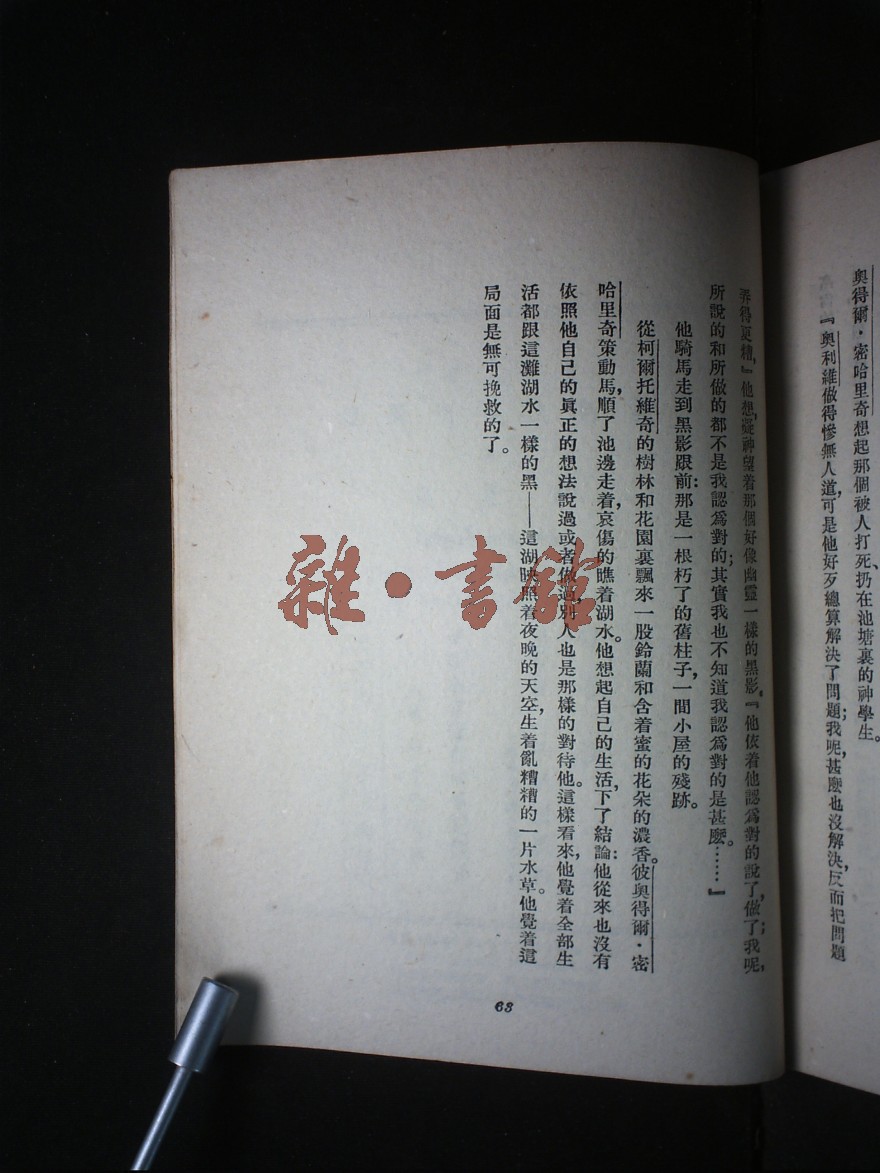 奧得爾・密哈里奇想起那個被人打死、扔在池塘裏的神學生。
『奧利維做得慘無人道，可是他好歹總算解決了問題；我呢，甚麼也沒解決，反而把問題
弄得更糟，』他想，凝神望着那個好像幽靈一樣的黑影。『他依着他認爲對的說了，做了；我呢，
所說的和所做的都不是我認爲對的；其實我也不知道我認爲對的是甚麼。……』
他騎馬走到黑影跟前：那是一根朽了的舊柱子，一間小屋的殘跡。
從柯爾托維奇的樹林和花園裏飄來一股鈴蘭和含着蜜的花朵的濃香。彼奧得爾・密
哈里奇策動馬，順了池邊走着，哀傷的瞧着湖水。他想起自己的生活，下了結論：他從來也沒有
依照他自己的眞正的想法說過或者做過，別人也是那樣的對待他。這樣看來，他覺着全部生
活都跟這灘湖水一樣的黑——這湖映照着夜晚的天空，生着亂糟糟的一片水草。他覺着這
局面是無可挽救的了。
63
雜・書館